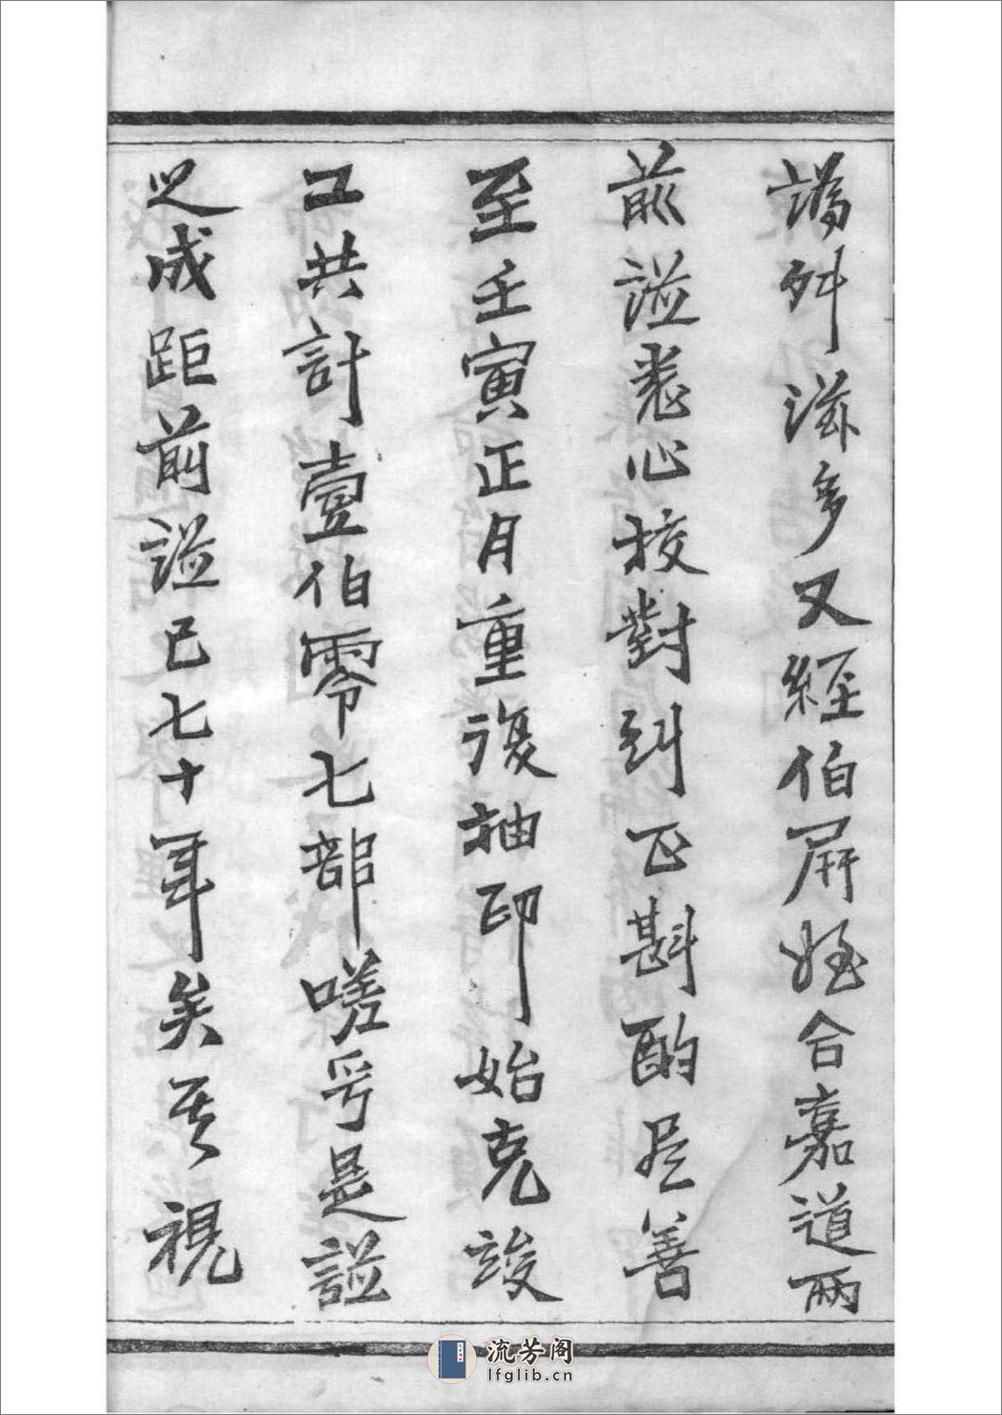 譌舛滋多又經伯屏姪合嘉道兩
前谥悉心校對糾正斟酌尽善
至壬寅正月重復抽印始克竣
工共計壹伯零七部嗟乎是謚
之成距前谥已七十年矣其視
流芳阁
lfglib.cn